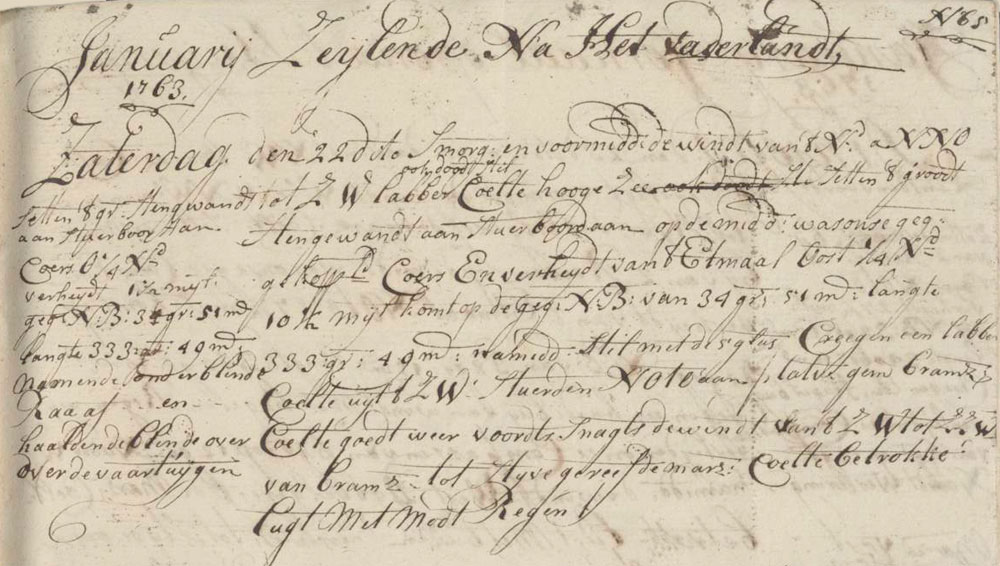 N 85
Januarij Zeylende Na Het vaderlandt
1763.
Zaterdag den 22 dito Smorg: en voormidd: de windt van 't N:d a NNO
ook doodt stil
tot ZW labber Coelte hooge Zee ook doodt stil Setten 't groodt
Stengewandt aan Stuerboord aan op de midd: was onse geg:
gekopp:d Coers En verheydt van 't Etmaal Oost 1/4 N:d
10 1/2 mijl komt op de geg: N:B: van 34 gr: 51 m: langte
333 gr: 49 m: namidd: Stil met di Sglas Creegen een labber
Coelte uyt 't ZW: Stuerden NOtO aan platvz gem bramz
Coelte goedt weer voordts Snagts de windt van 't ZW tot ZZW
van bramz tot Styve gereefde marz: Coelte betrokke
lugt Met Modt Regen
Setten 't gr: Stengwandt
aan Stuerboor Han
Coers O 1/4 N:d
verheydt 10 1/2 myl:
geg: N:B: 34 gr: 51 m:
langte 333: gr: 49 m:
Namen de onderblende
Raa af en
haalden de blende over
over de vaartuygen